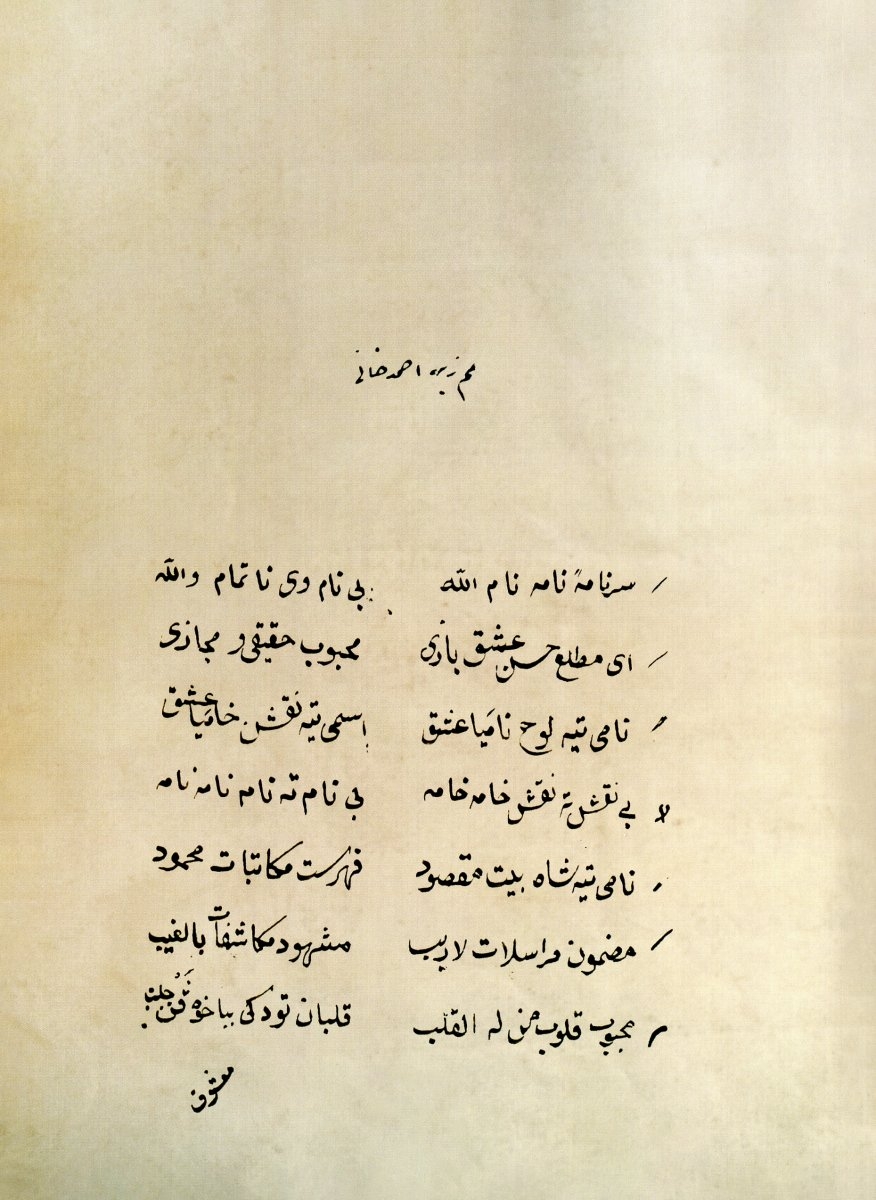 مم زین احمد خانی
سرنامهٔ نامه نام الله بی نام وی نا تمام والله
ای مطلع حسن عشق بازی محبوب حقیقی و مجازی
نامی تیه لوح نامیا عشق اسمی تیه نقش خامیا عشق
بی نقش ته نقش خامه خامه بی نام ته نام نامه نامه
نامی تیه شاه بیت مقصود فهرست مکاتبات محمود
مضمون مراسلات لاریب مشهود مکاشفات بالغیب
محبوب قلوب من له القلب قلبان تو دکی بباخوه جلب